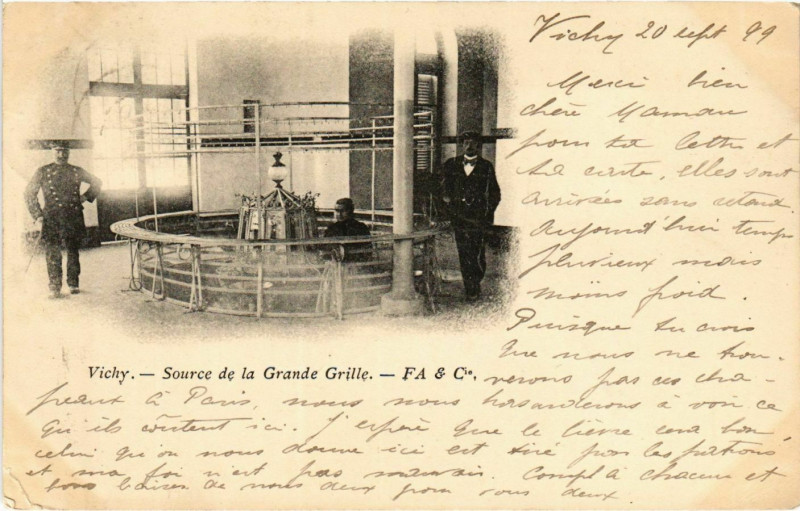 Vichy 20 sept 99
Merci bien
chère Maman
pour ta lettre et
ta carte, elles sont
arrivées sans retard.
Aujourd'hui temps
pluvieux mais
moins froid.
Puisque tu crois
que nous ne trou-
verons pas ces cha-
Vichy. — Source de la Grande Grille. — FA & Cie.
peaux à Paris, nous nous hasarderons à voir ce
qu'ils coûtent ici. J'espère que le lièvre sera bon,
celui qu'on nous donne ici est tiré par les patrons
et ma foi n'est pas mauvais. Compl à chacun et
bons baisers de nous deux pour vous deux